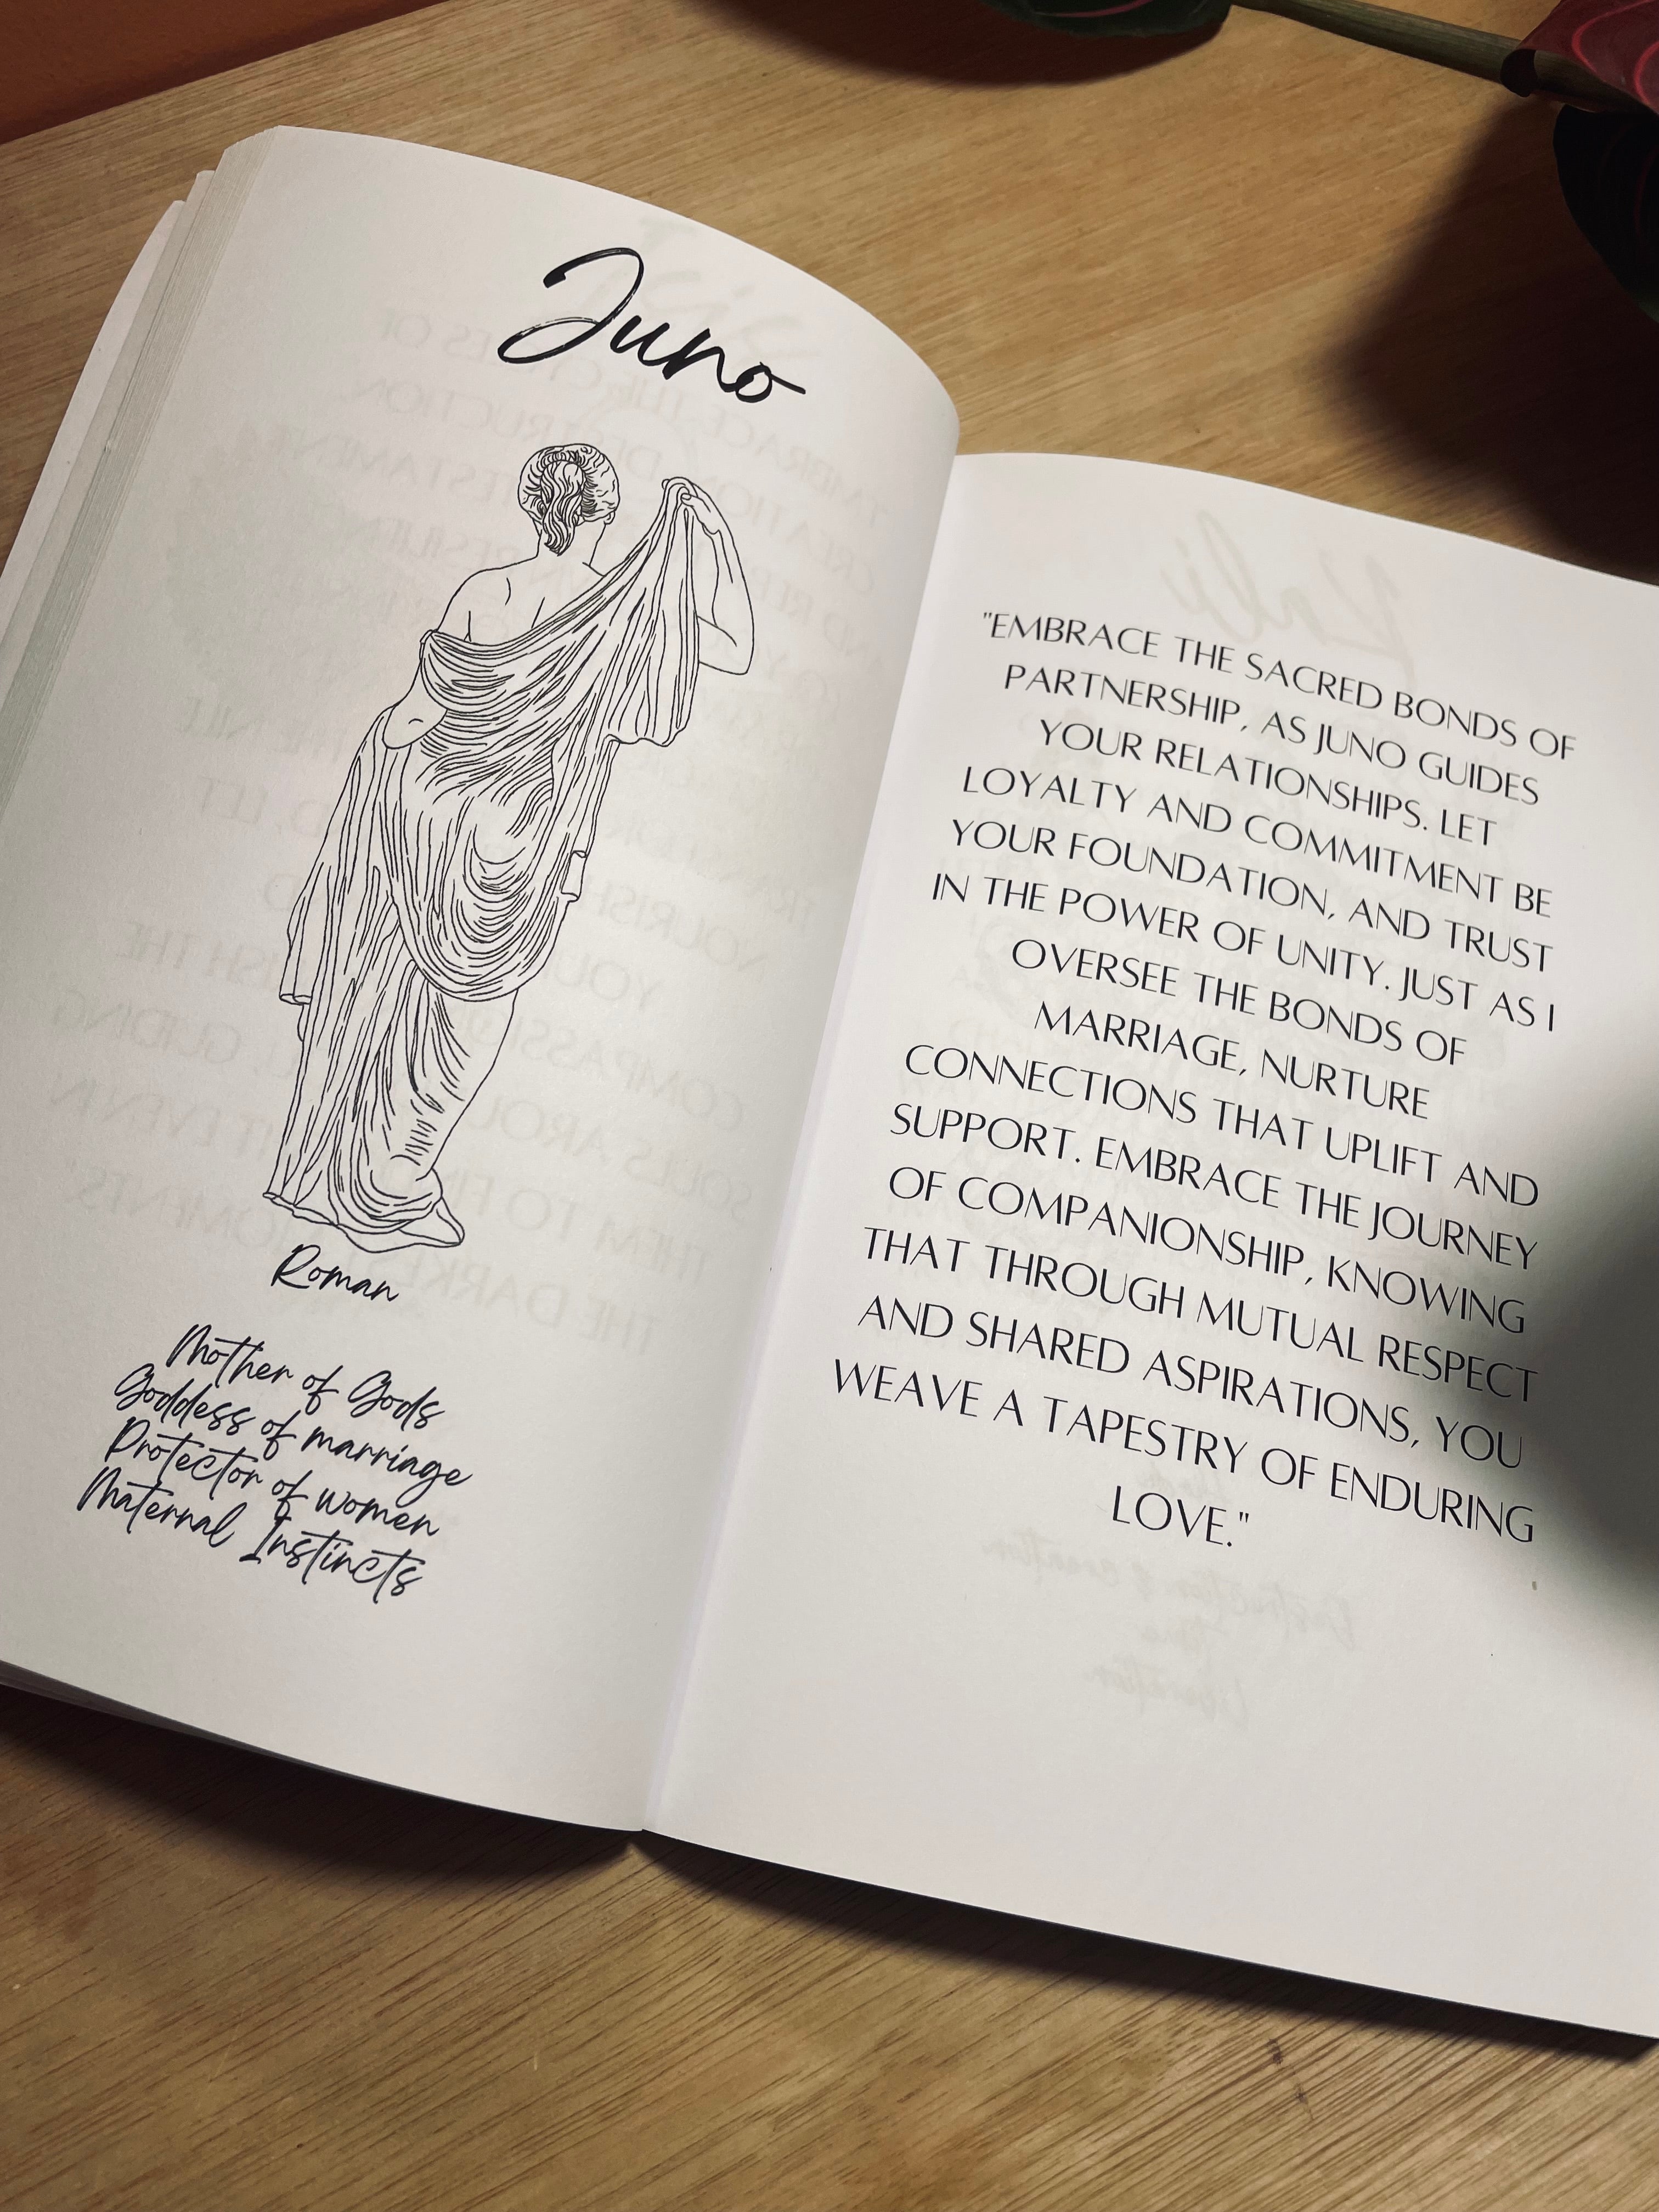 Juno
Roman
Mother of Gods
Goddess of marriage
Protector of women
Maternal Instincts
"EMBRACE THE SACRED BONDS OF
PARTNERSHIP, AS JUNO GUIDES
YOUR RELATIONSHIPS. LET
LOYALTY AND COMMITMENT BE
YOUR FOUNDATION, AND TRUST
IN THE POWER OF UNITY. JUST AS I
OVERSEE THE BONDS OF
MARRIAGE, NURTURE
CONNECTIONS THAT UPLIFT AND
SUPPORT. EMBRACE THE JOURNEY
OF COMPANIONSHIP, KNOWING
THAT THROUGH MUTUAL RESPECT
AND SHARED ASPIRATIONS, YOU
WEAVE A TAPESTRY OF ENDURING
LOVE."